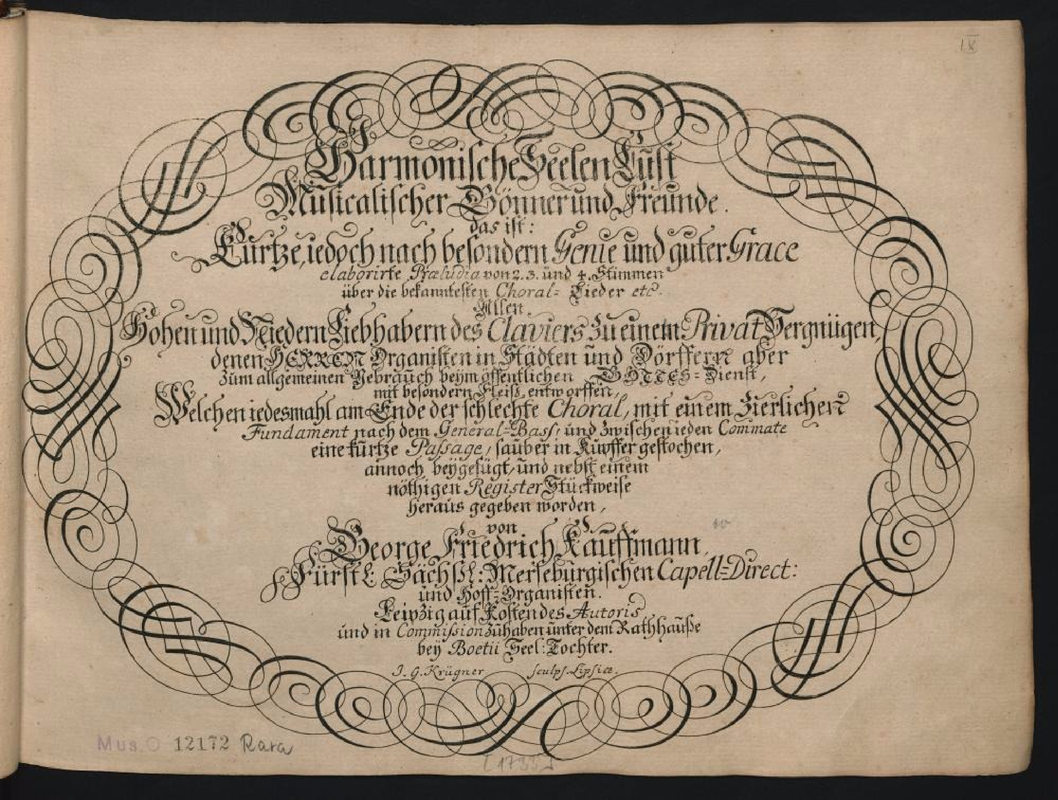 IX
Harmonische Seelen Lust
Musicalischer Gönner und Freunde.
das ist:
Kurtze, iedoch nach besondern Genie und guter Grace
elaborirte Præludia von 2. 3. und 4. Stimmen
über die bekanntesten Choral-Lieder etc.
Allen
Hohen und Niedern Liebhabern des Claviers zu einem Privat Vergnügen,
denen HERREN Organisten in Städten und Dörffern aber
zum allgemeinen Gebrauch beym öffentlichen GOTTES-Dienst,
mit besondern Fleiß entworffen,
Welchen iedesmahl am Ende der schlechte Choral, mit einem Zierlichen
Fundament nach dem General-Bass, und zwischen ieden Commate
eine kurtze Passage, sauber in Kupffer gestochen,
annoch beygefügt, und nebst einem
nöthigen Register Stückweise
heraus gegeben worden,
von
George Friedrich Kauffmann,
Fürstl: Sächßl: Merseburgischen Capell-Direct:
und Hoff-Organisten.
Leipzig auf Kosten des Autoris
und in Commission zu haben unter dem Rathhauße
bey Boetii Seel: Tochter.
J. G. Krügner sculps. Lipsiæ.
Mus. O 12172 Rara
[1733]